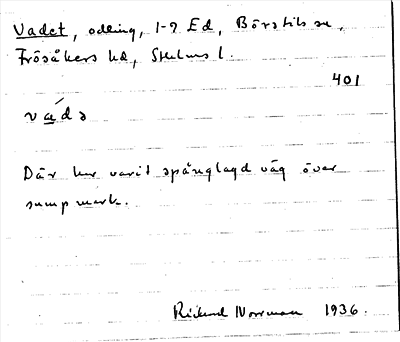 Vadet, odling, 1-7 Ed, Börstils sn,
Frösåkers hd, Sthlms l.
401
vádə
Där har varit spånglagd väg över
sumpmark.
Rickard Norrman 1936.